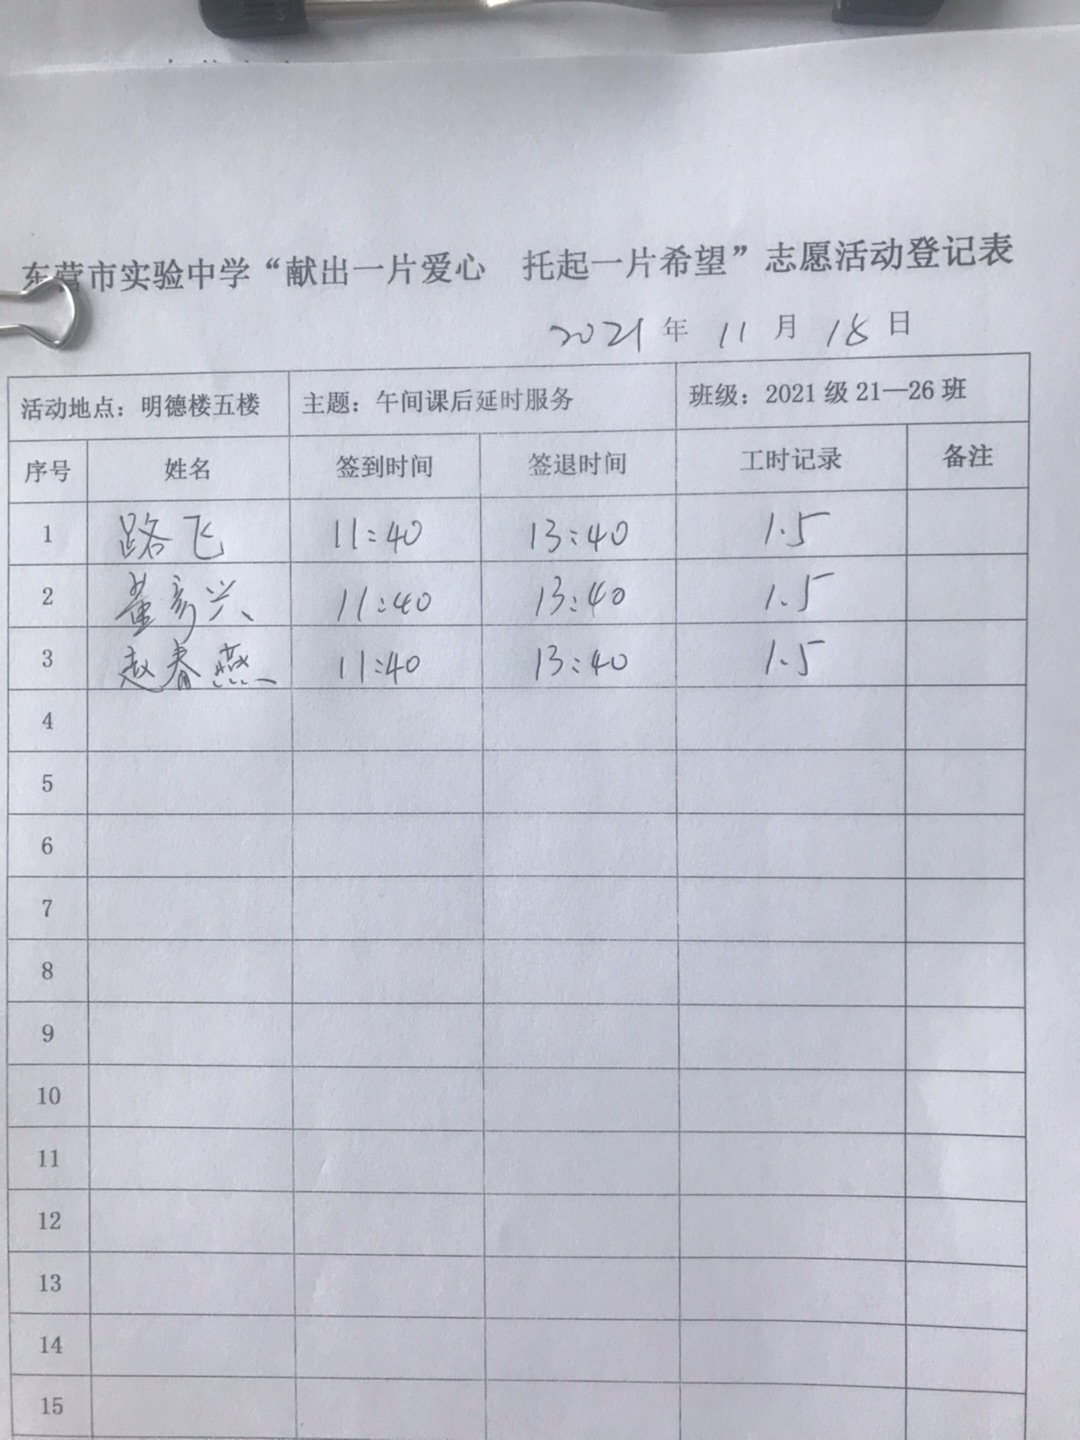 东营市实验中学“献出一片爱心 托起一片希望”志愿活动登记表
2021 年 11 月 18 日
活动地点：明德楼五楼 主题：午间课后延时服务 班级：2021 级 21—26 班
序号 姓名 签到时间 签退时间 工时记录 备注
1 路飞 11:40 13:40 1.5
2 董彦兴 11:40 13:40 1.5
3 赵春燕 11:40 13:40 1.5
4
5
6
7
8
9
10
11
12
13
14
15